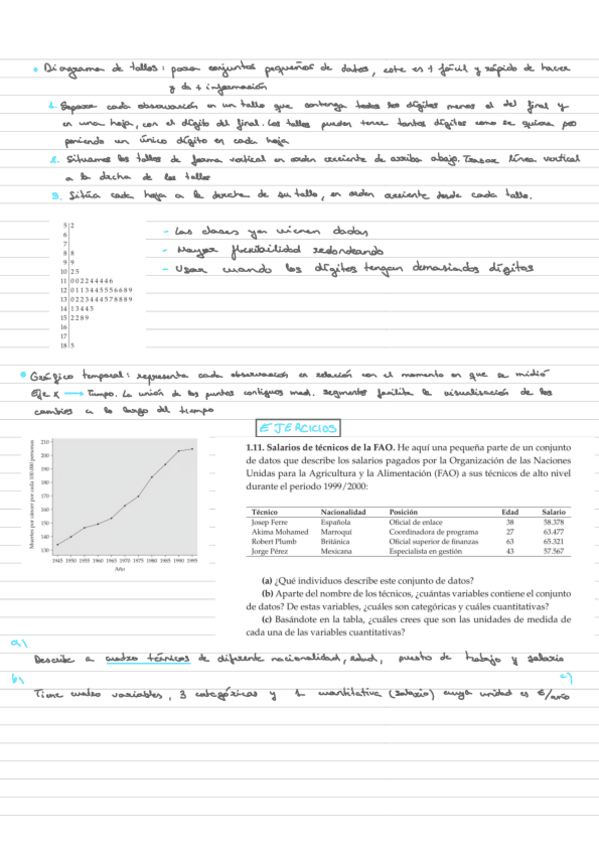 • Diagrama de tallos: para conjuntos pequeños de datos, este es + fácil y rápido de hacer
y da + información
1. Separar cada observación en un tallo que contenga todos los dígitos menos el del final y
en una hoja, con el dígito del final. Los tallos pueden tener tantos dígitos como se quiera pero
poniendo un único dígito en cada hoja
2. Situamos los tallos de forma vertical en orden creciente de arriba abajo. Trazar línea vertical
a la drcha de los tallos
3. Sitúa cada hoja a la drcha de su tallo, en orden creciente desde cada tallo.
5 | 2
6
7
8 | 8
9 | 9
10 | 2 5
11 | 0 0 2 2 4 4 4 4 6
12 | 0 1 1 3 4 4 5 5 5 6 6 8 9
13 | 0 2 2 3 4 4 4 5 7 8 8 8 9
14 | 1 3 4 4 5
15 | 2 2 8 9
16
17
18 | 5
- Las clases ya vienen dadas
- Mayor flexibilidad redondeando
- Usar cuando los dígitos tengan demasiados dígitos
• Gráfico temporal: representa cada observación en relación con el momento en que se midió
Eje X → Tiempo. La unión de los puntos contiguos med. segmentos facilita la visualización de los
cambios a lo largo del tiempo
EJERCICIOS
Muertes por cáncer por cada 100.000 personas
210
200
190
180
170
160
150
140
130
1945 1950 1955 1960 1965 1970 1975 1980 1985 1990 1995
Año
1.11. Salarios de técnicos de la FAO. He aquí una pequeña parte de un conjunto
de datos que describe los salarios pagados por la Organización de las Naciones
Unidas para la Agricultura y la Alimentación (FAO) a sus técnicos de alto nivel
durante el periodo 1999/2000:
Técnico Nacionalidad Posición Edad Salario
Josep Ferre Española Oficial de enlace 38 58.378
Akima Mohamed Marroquí Coordinadora de programa 27 63.477
Robert Plumb Británica Oficial superior de finanzas 63 65.321
Jorge Pérez Mexicana Especialista en gestión 43 57.567
(a) ¿Qué individuos describe este conjunto de datos?
(b) Aparte del nombre de los técnicos, ¿cuántas variables contiene el conjunto
de datos? De estas variables, ¿cuáles son categóricas y cuáles cuantitativas?
(c) Basándote en la tabla, ¿cuáles crees que son las unidades de medida de
cada una de las variables cuantitativas?
a)
Describe a cuatro técnicos de diferente nacionalidad, edad, puesto de trabajo y salario
b) c)
Tiene cuatro variables, 3 categóricas y 1 cuantitativa (salario) cuya unidad es €/año